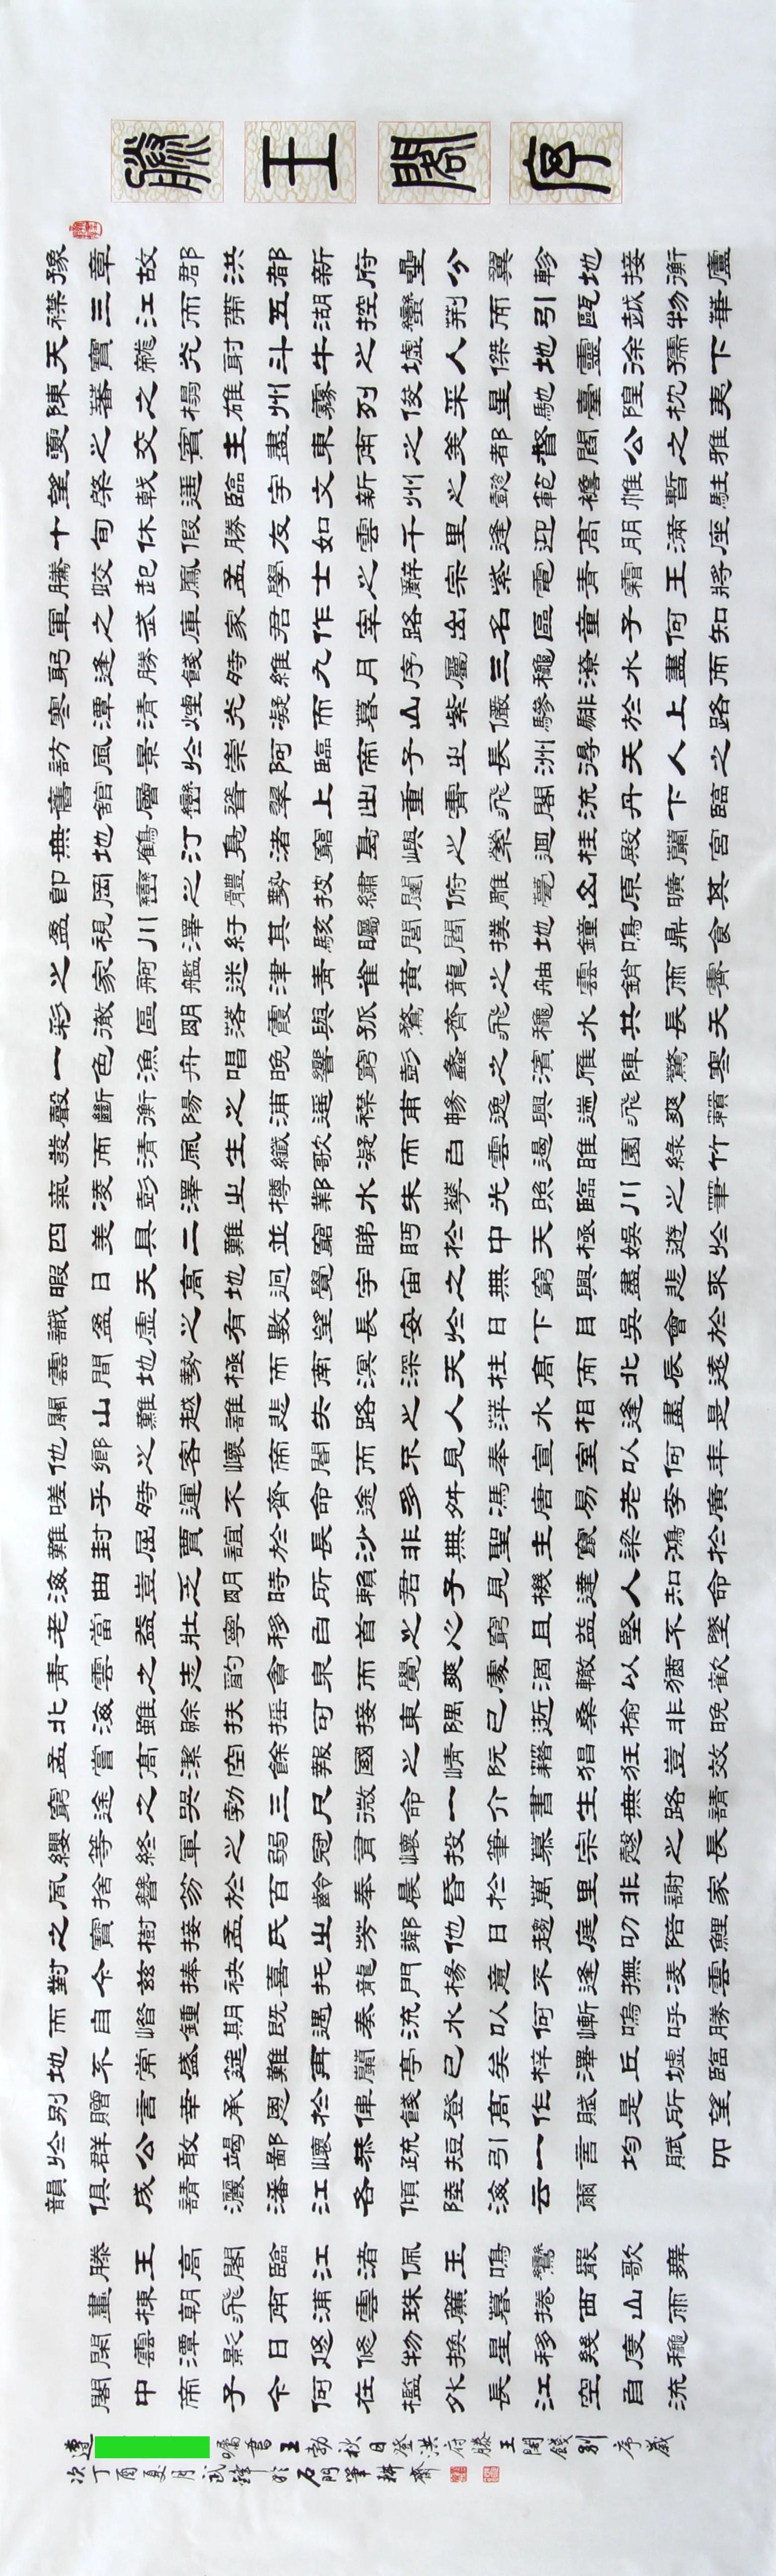 滕王閣序
豫章故郡洪都新府星分翼軫地接衡廬
襟三江而帶五湖控蠻荊而引甌越物華
天寶龍光射斗牛之墟人傑地靈徐孺下
陳蕃之榻雄州霧列俊采星馳臺隍枕夷
夏之交賓主盡東南之美都督閻公之雅
望棨戟遙臨宇文新州之懿範襜帷暫駐
十旬休假勝友如雲千里逢迎高朋滿座
騰蛟起鳳孟學士之辭宗紫電青霜王將
軍之武庫家君作宰路出名區童子何知
躬逢勝餞時維九月序屬三穐潦水盡而
寒潭清煙光凝而暮山紫儼驂騑於上路
訪風景於崇阿臨帝子之長洲得天人之
舊館層巒聳翠上出重霄飛閣流丹下臨
無地鶴汀鳧渚窮島嶼之縈迴桂殿蘭宮
即岡巒之體勢披繡闥俯雕甍山原曠其
盈視川澤紆其駭矚閭閻撲地鐘鳴鼎食
之家舸艦迷津青雀黃龍之舳雲銷雨霽
彩徹區明落霞與孤鶩齊飛穐水共長天
一色漁舟唱晚響窮彭蠡之濱雁陣驚寒
聲斷衡陽之浦遙襟甫暢逸興遄飛爽籟
發而清風生纖歌凝而白雲遏睢園綠竹
氣凌彭澤之樽鄴水朱華光照臨川之筆
四美具二難並窮睇眄於中天極娛遊於
暇日天高地迥覺宇宙之無窮興盡悲來
識盈虛之有數望長安於日下目吳會於
雲間地勢極而南溟深天柱高而北辰遠
關山難越誰悲失路之人萍水相逢盡是
他鄉之客懷帝閽而不見奉宣室以何年
嗟乎時運不齊命途多舛馮唐易老李廣
難封屈賈誼於長沙非無聖主竄梁鴻於
海曲豈乏明時所賴君子見機達人知命
老當益壯寧移白首之心窮且益堅不墜
青雲之志酌貪泉而覺爽處涸轍以猶歡
北海雖賒扶搖可接東隅已逝桑榆非晚
孟嘗高潔空餘報國之情阮籍猖狂豈效
窮途之哭勃三尺微命一介書生無路請
纓等終軍之弱冠有懷投筆慕宗愨之長
風捨簪笏於百齡奉晨昏於萬里非謝家
之寶樹接孟氏之芳鄰他日趨庭叨陪鯉
對今茲捧袂喜托龍門楊意不逢撫凌雲
而自惜鍾期既遇奏流水以何慚嗚呼勝
地不常盛筵難再蘭亭已矣梓澤丘墟臨
別贈言幸承恩於偉餞登高作賦是所望
於群公敢竭鄙懷恭疏短引一言均賦四
韻俱成請灑潘江各傾陸海云爾
滕王高閣臨江渚佩玉鳴鸞罷歌舞
畫棟朝飛南浦雲珠簾暮捲西山雨
閑雲潭影日悠悠物換星移幾度穐
閣中帝子今何在檻外長江空自流
遵囑書王勃秋日登洪府滕王閣餞別序歲
次丁酉夏月武鋒於石門筆耕齋